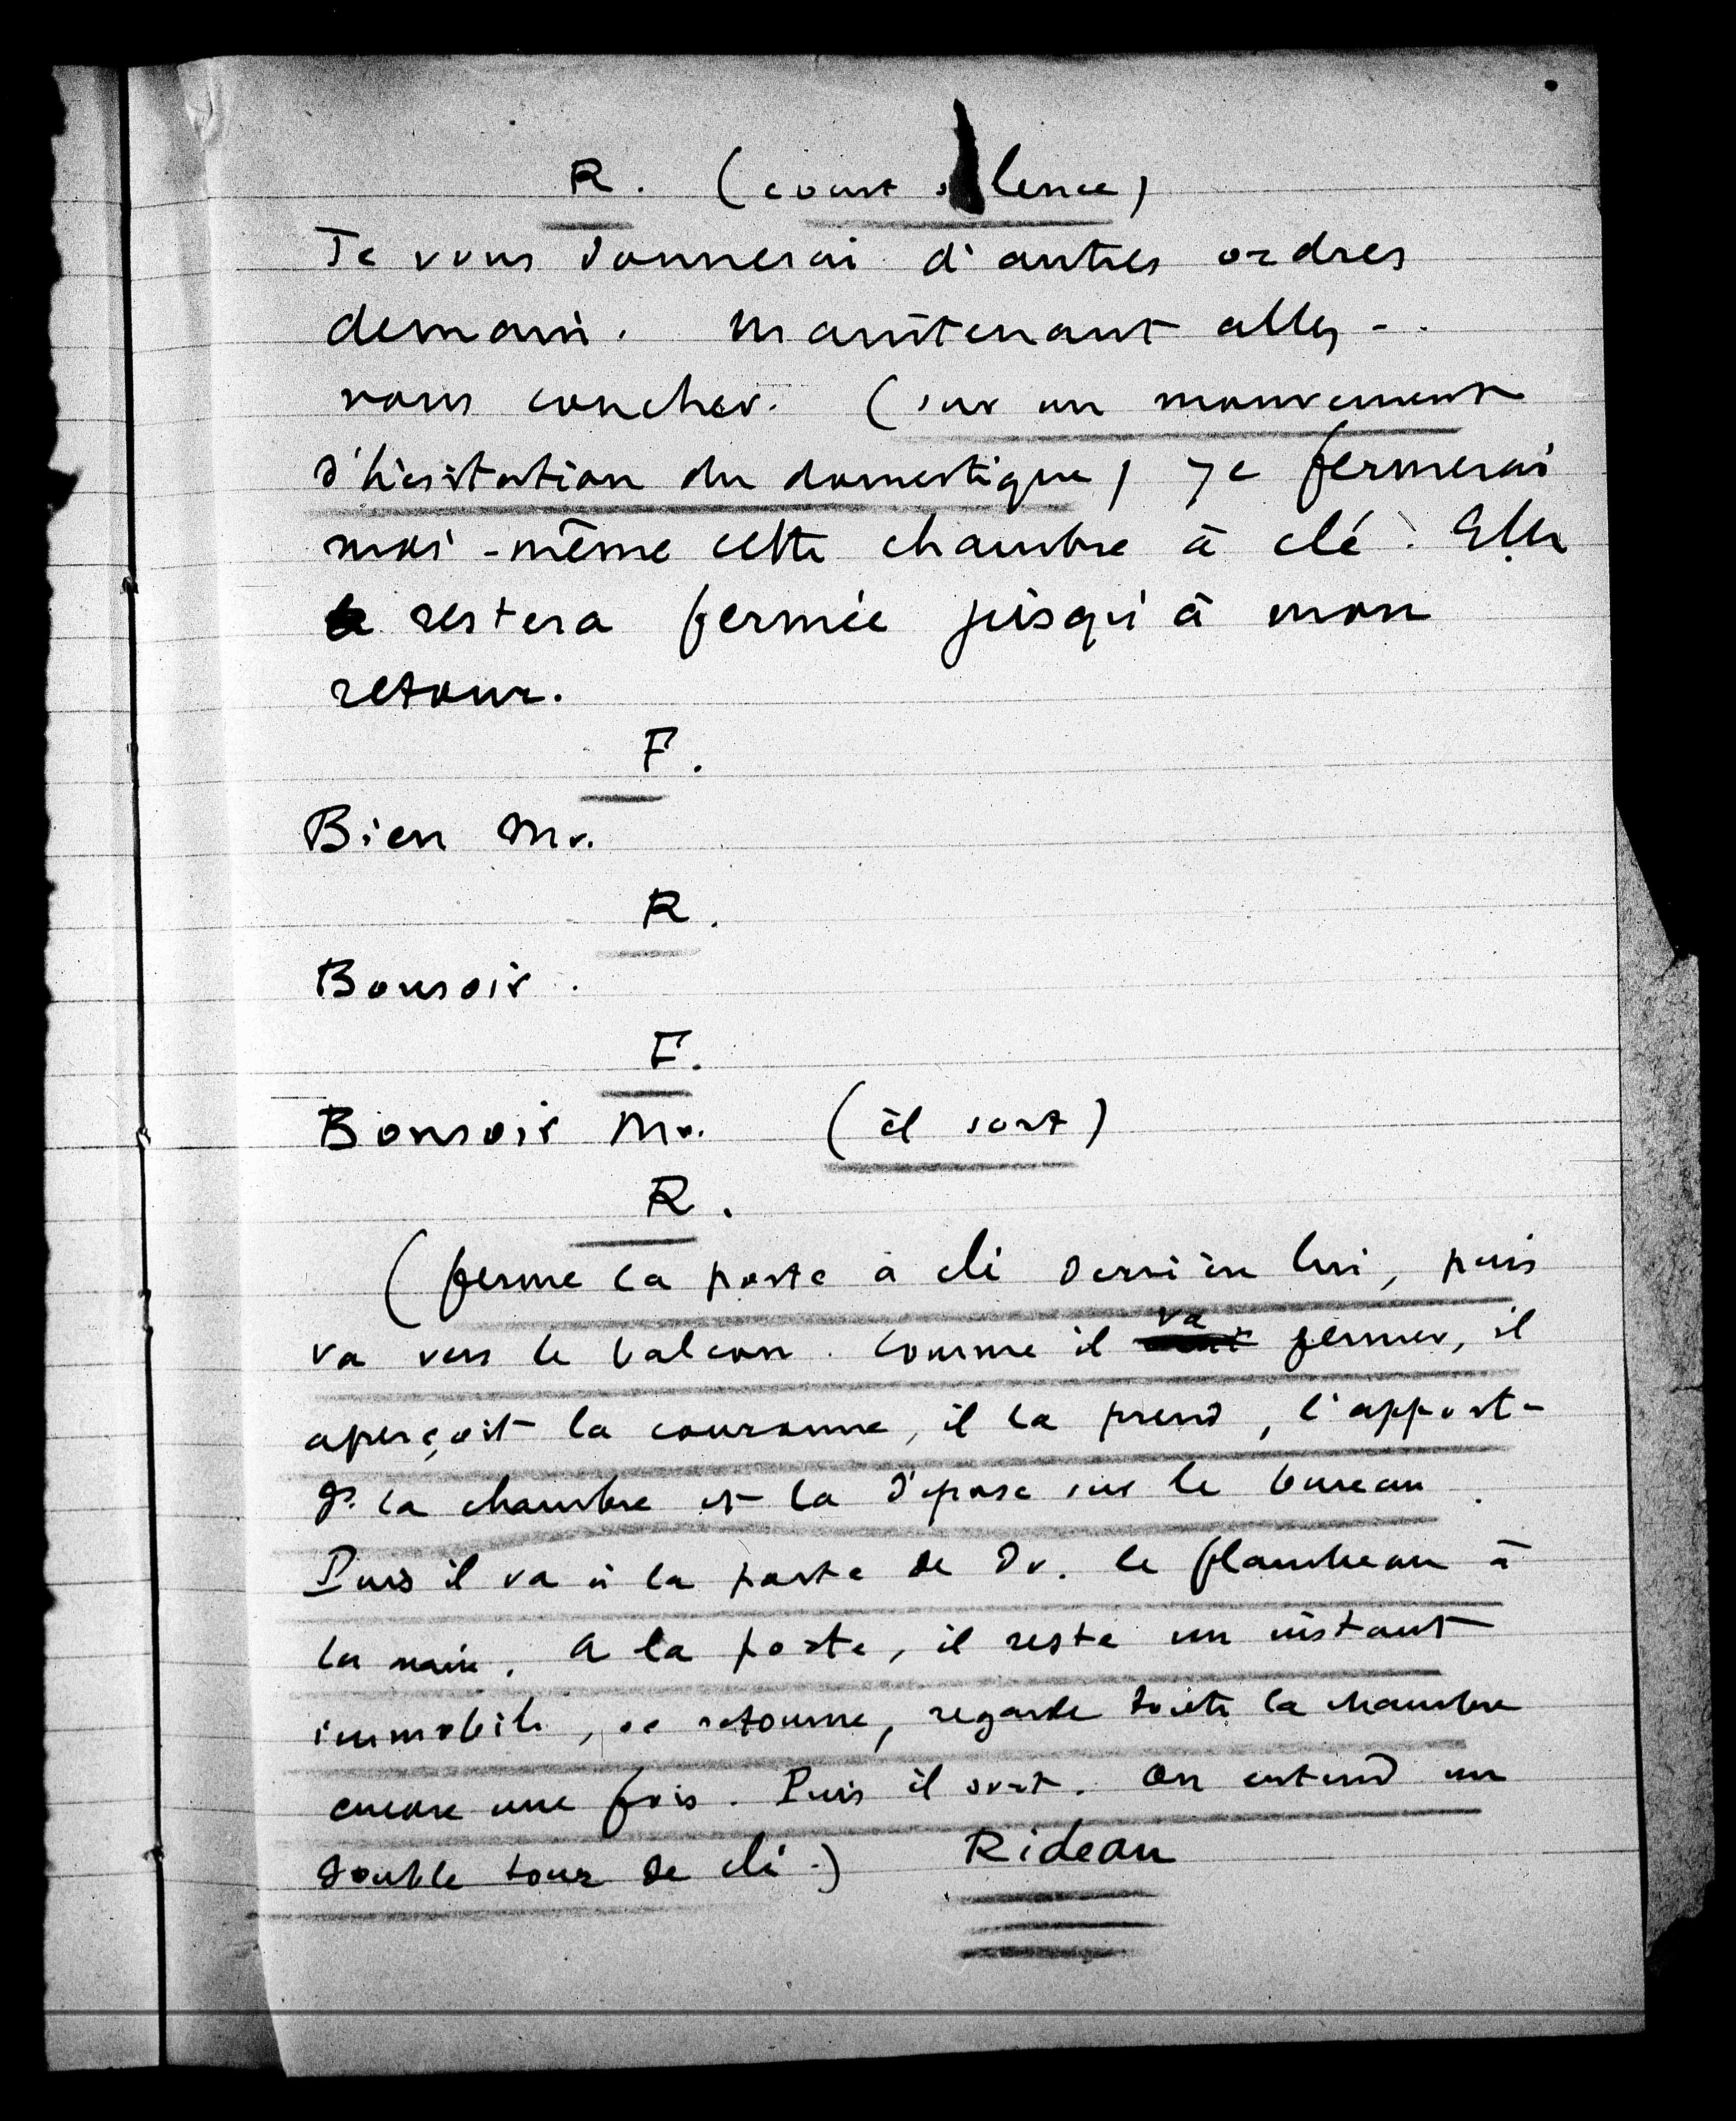 R. (court silence)
Je vous donnerai d'autres ordres
demain. Maintenant allez-
vous coucher. (sur un mouvement
d'hésitation du domestique) Je fermerai
moi-même cette chambre à clé. Elle
restera fermée jusqu'à mon
retour.
F.
Bien Mr.
R.
Bonsoir.
F.
Bonsoir Mr. (il sort)
R.
(ferme la porte à clé derrière lui, puis
va vers le balcon. Comme il va fermer, il
aperçoit la couronne, il la prend, l'apporte
ds. la chambre et la dépose sur le bureau.
Puis il va à la porte de Dr. le flambeau à
la main. A la porte, il reste un instant
immobile, se retourne, regarde toute la chambre
encore une fois. Puis il sort. On entend un
double tour de clé.) Rideau